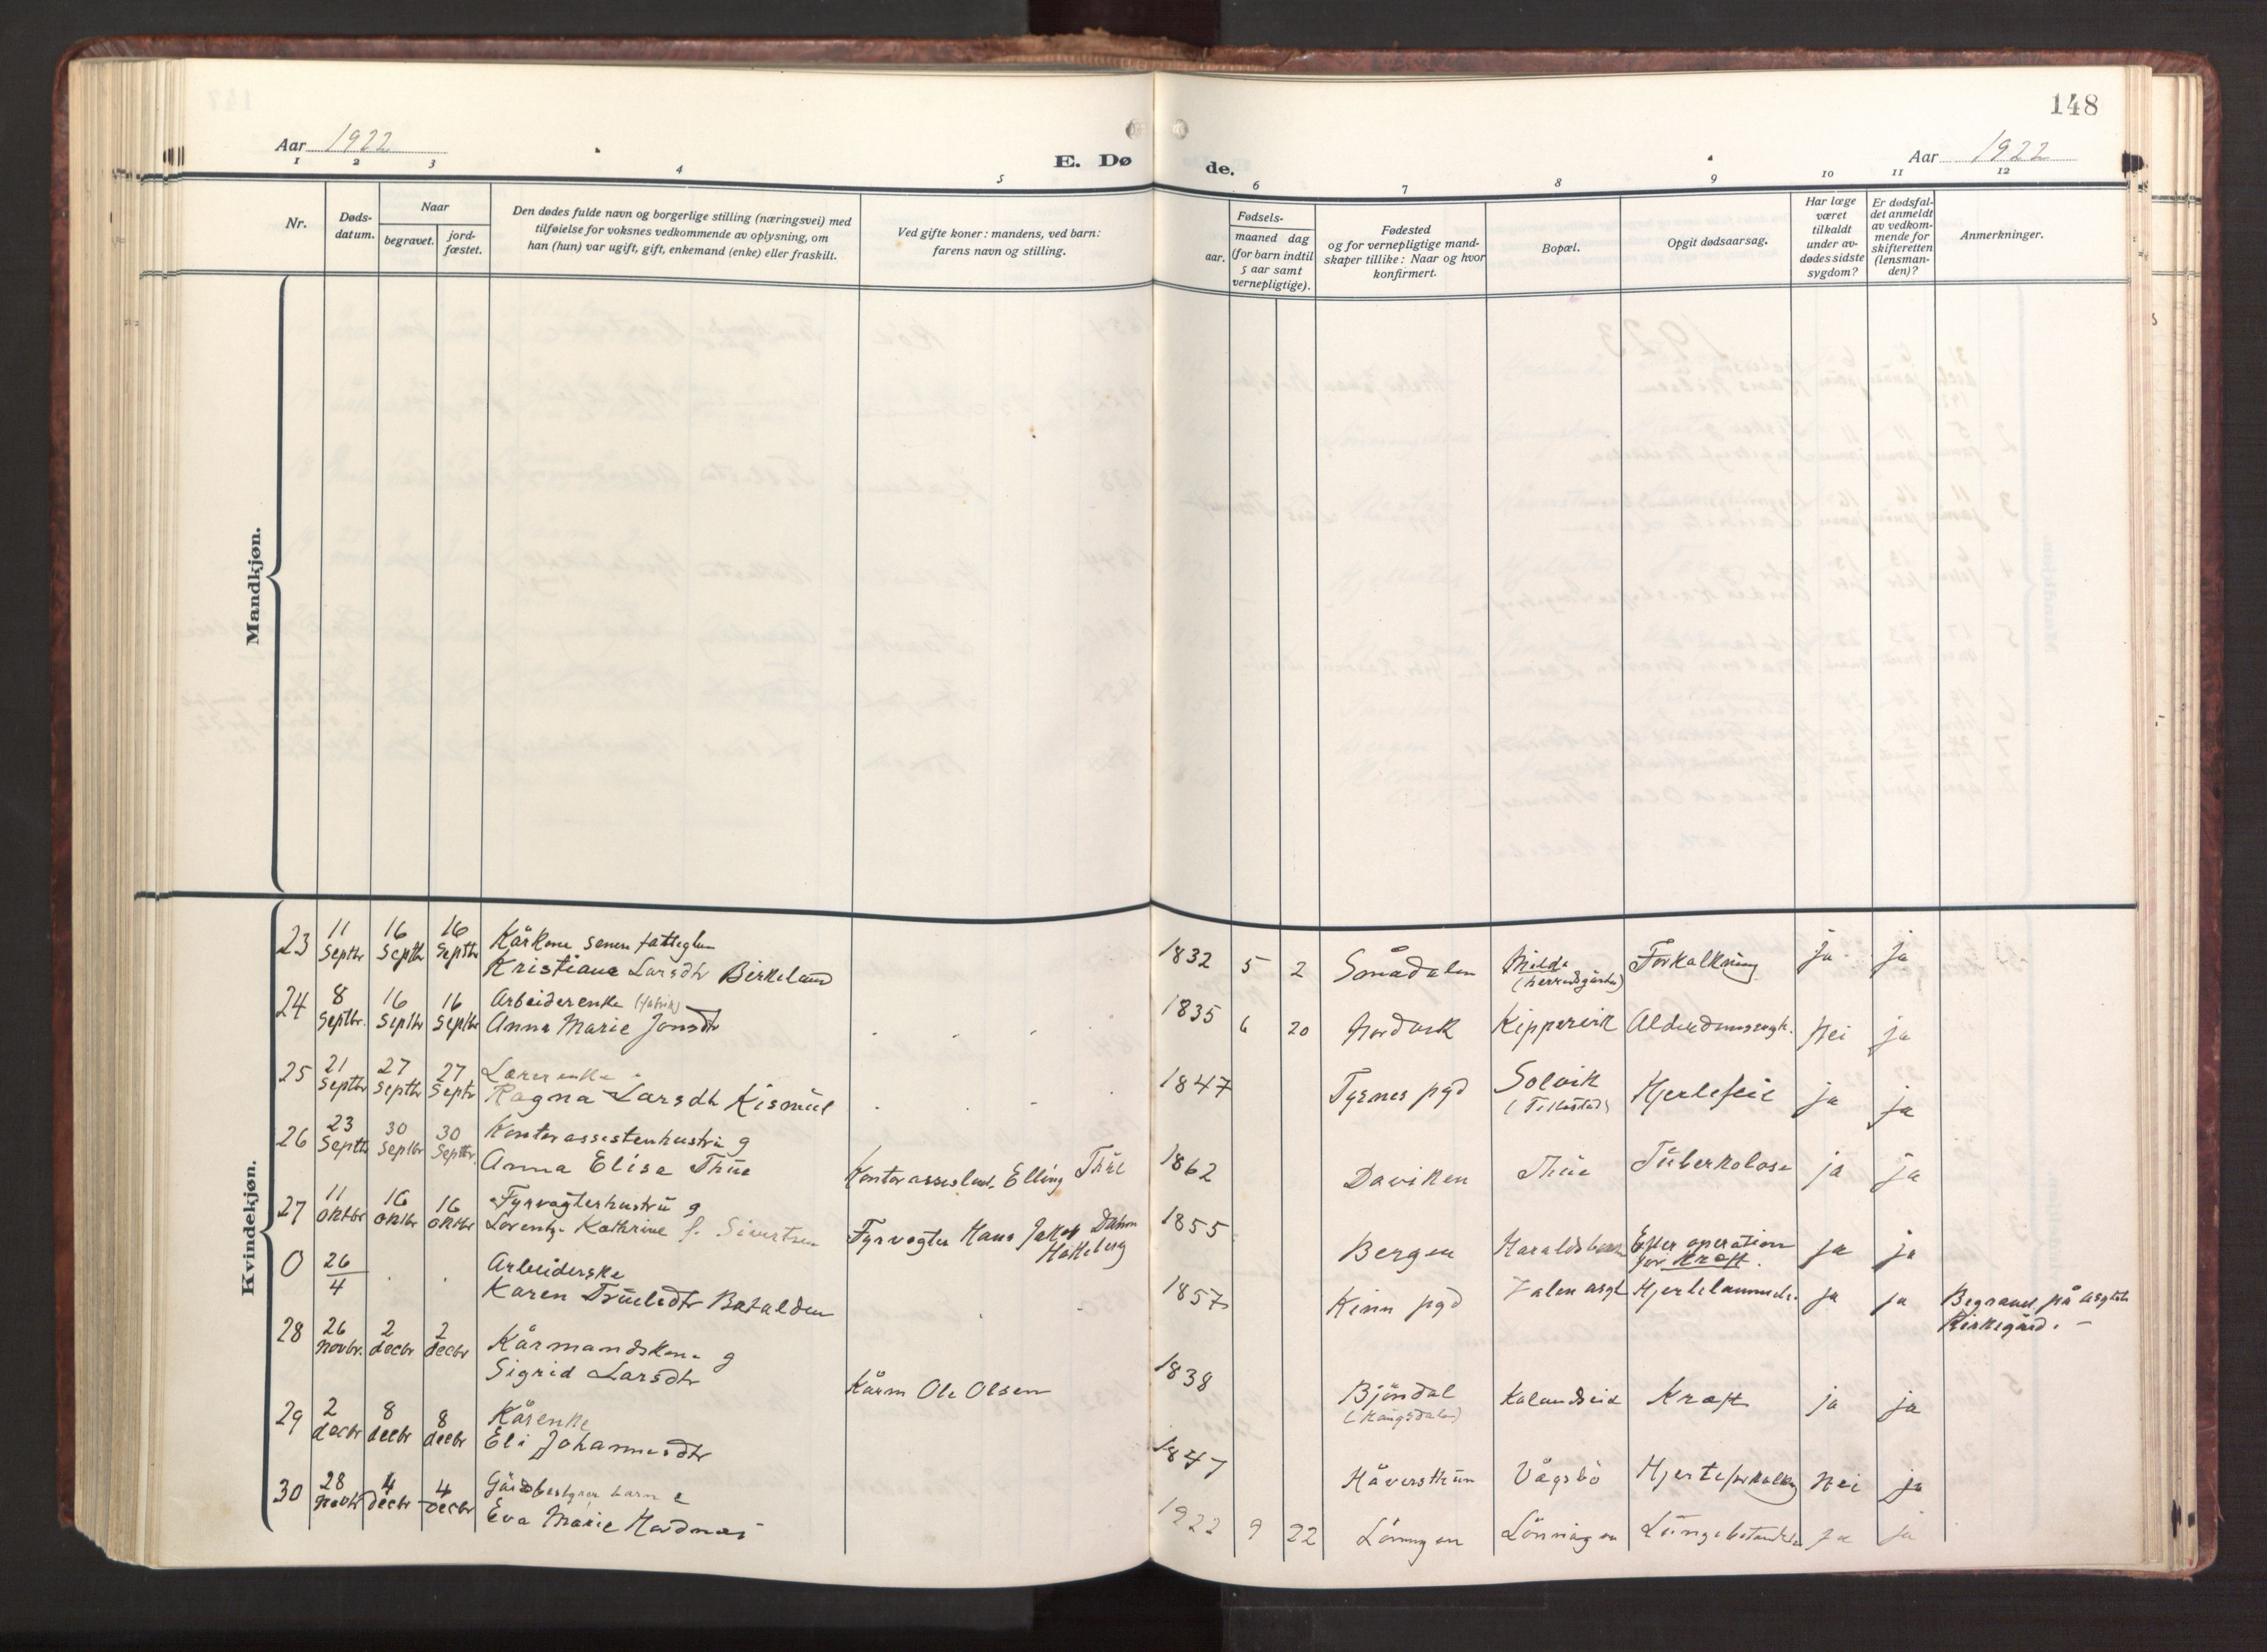 148
Aar 1922
E. Døde.
Aar 1922
1 2 3 4 5 6 7 8 9 10 11 12
Nr.
Døds-
datum.
Naar
begravet.
jord-
fæstet.
Den dødes fulde navn og borgerlige stilling (næringsvei) med
tilføielse for voksnes vedkommende av oplysning, om
han (hun) var ugift, gift, enkemand (enke) eller fraskilt.
Ved gifte koner: mandens, ved barn:
farens navn og stilling.
Fødsels-
aar.
maaned dag
(for barn indtil
5 aar samt
vernepligtige).
Fødested
og for vernepligtige mand-
skaper tillike: Naar og hvor
konfirmert.
Bopæl.
Opgit dødsaarsag.
Har læge
været
tilkaldt
under av-
dødes sidste
sygdom?
Er dødsfal-
det anmeldt
av vedkom-
mende for
skifteretten
(lensman-
den)?
Anmerkninger.
Mandkjøn.
Kvindekjøn.
23 11 Septbr 16 Septbr 16 Septbr Kårkone
Kristiane Larsdtr Birkeland 1832 5 2 Smådalen Milde Forkalkning ja ja
24 8 Septbr. 16 Septbr 16 Septbr Arbeiderenke (fabrik)
Anna Marie Jonsdtr 1835 6 20 Nordvik Kippervik Nei ja
25 21 Septbr 27 Septbr 27 Septr Lærerenke
Ragna Larsdtr Kismul 1847 Tysnes pgd Solvik Hjertefeil ja ja
26 23 Septbr 30 Septbr 30 Septbr. Kontorassistenhustru g
Anna Elise Thue Kontorassistent Elling Thue 1862 Daviken Thue Tuberkolose ja ja
27 11 Oktbr 16 Oktbr 16 Oktbr Fyrvogterhustru g
Kathrine f. Sivertsen Fyrvogter Hans Jakob Hatleberg 1855 Bergen Efter operation
for Kræft. ja ja
0 26/4 Arbeiderske
Karen Truelsdtr Batalden 1857 Kinn pgd asyl ja ja Begravet på asylets
Kirkegård. -
28 26 Novbr. 2 decbr 2 decbr Kårmandskone g
Sigrid Larsdtr Kårm Ole Olsen 1838 Bjöndal Kalandseid Kræft ja ja
29 2 decbr 8 decbr 8 decbr Kårenke
Eli Johannesdtr 1847 Håversthun Vågsbö Hjerteforkalkng Nei ja
30 28 Novbr 4 decbr 4 decbr Gårdbestyrer barn e
Eva Marie Hordnes 1922 9 22 Lönningen Lönningen Lungebetændelse ja ja